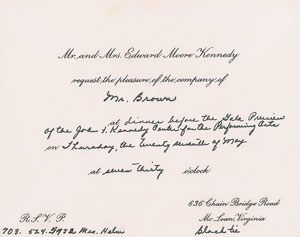 Mr. and Mrs. Edward Moore Kennedy
request the pleasure of the company of
Mr. Brown
at dinner before the Gala Preview
of the John F. Kennedy Center for the Performing Arts
on Thursday, the twenty seventh of May
at seven thirty o'clock
636 Chain Bridge Road
R.S.V.P. Mc Lean, Virginia
703. 524. Mrs. Black tie